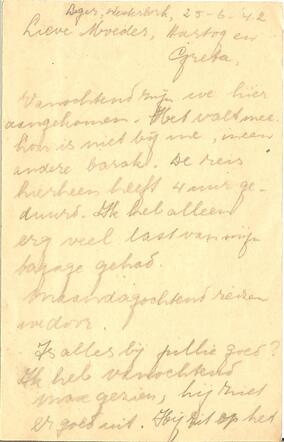 Lager, Westerbork, 25-6-42
Lieve Moeder, Hartog en
Greta,
Vanochtend zijn we hier
aangekomen. Het valt mee.
hon is niet bij me, in een
andere barak. De reis
hierheen heeft 4 uur ge-
duurd. Ik heb alleen
erg veel last van mijn
bagage gehad.
Maandagochtend reizen
we door.
Is alles bij jullie goed?
Ik heb vanochtend
Max gezien, hij ziet
er goed uit. Hij zit op het